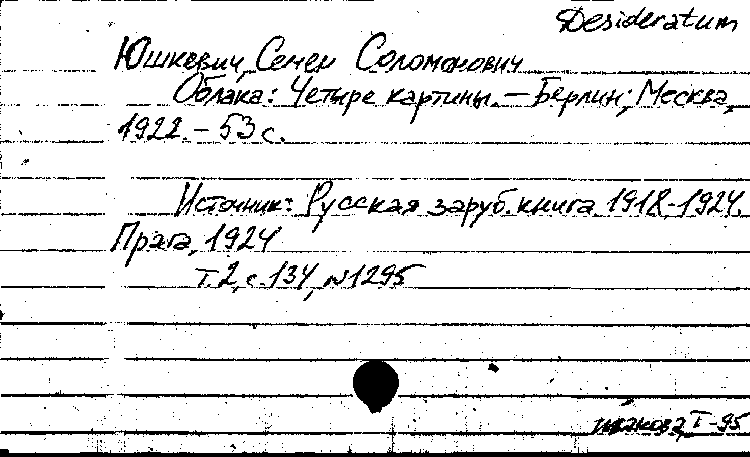 Desideratum
Юшкевич, Семен Соломонович
Облака: Четыре картины. – Берлин; Москва,
1922. – 53 с.
Источник: Русская заруб. книга 1918-1924.
Прага, 1924
Т.2, с.134, №1295
I-95